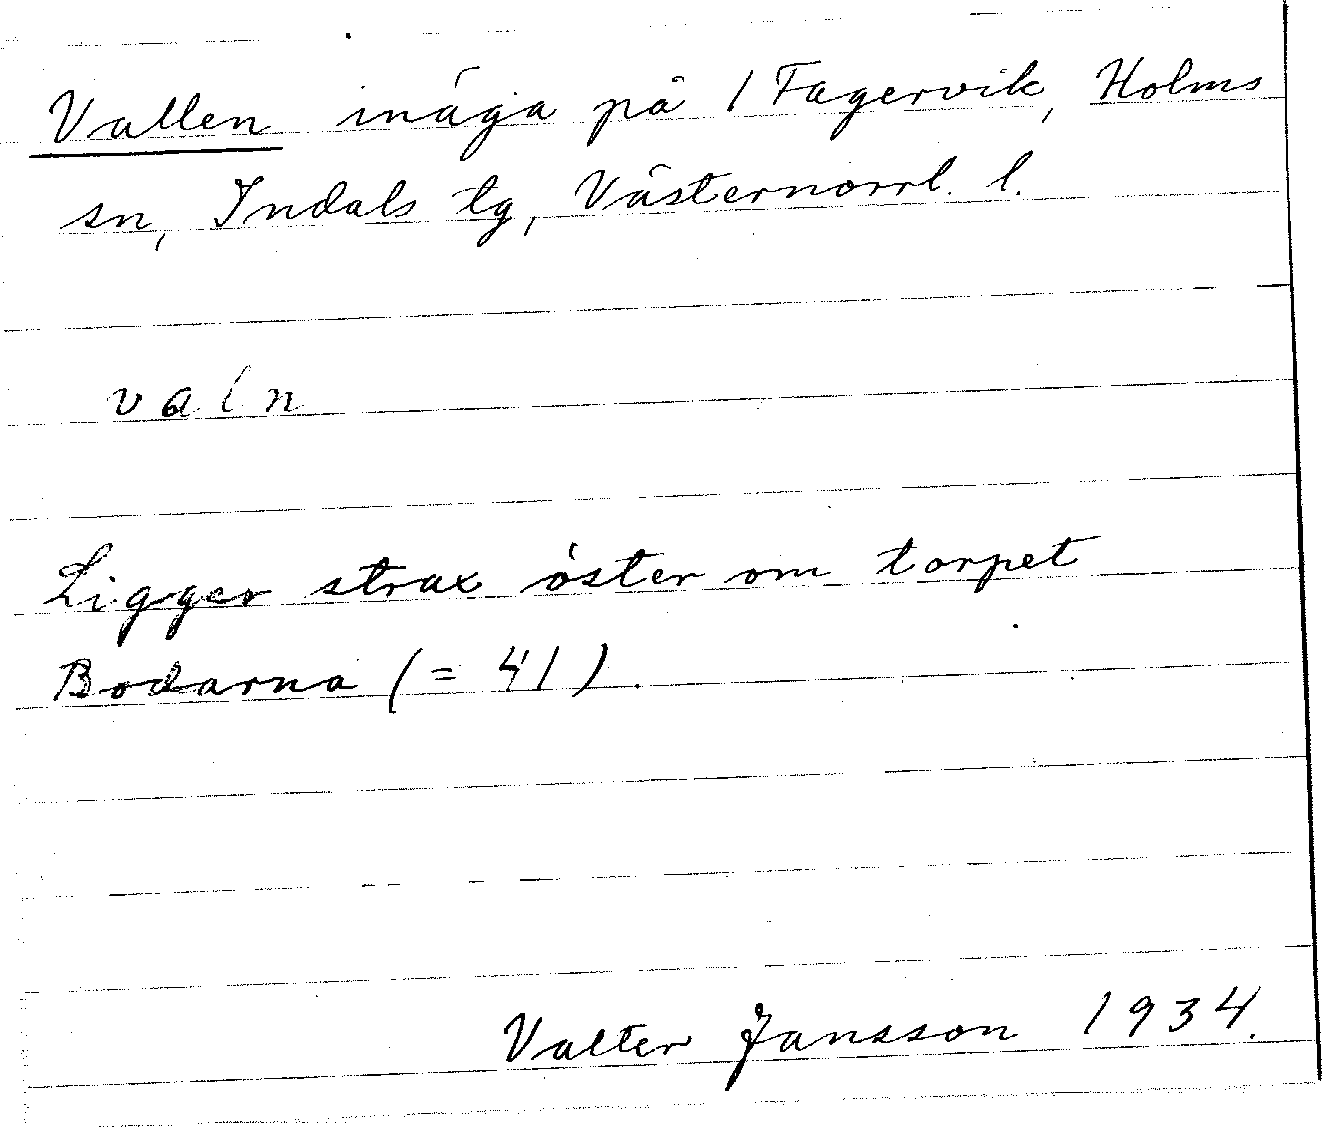 Vallen inäga på 1 Fagervik, Holms
sn, Indals tg, Västernorrl. l.
valn
Ligger strax öster om torpet
Bodarna (= 41).
Valter Jansson 1934.